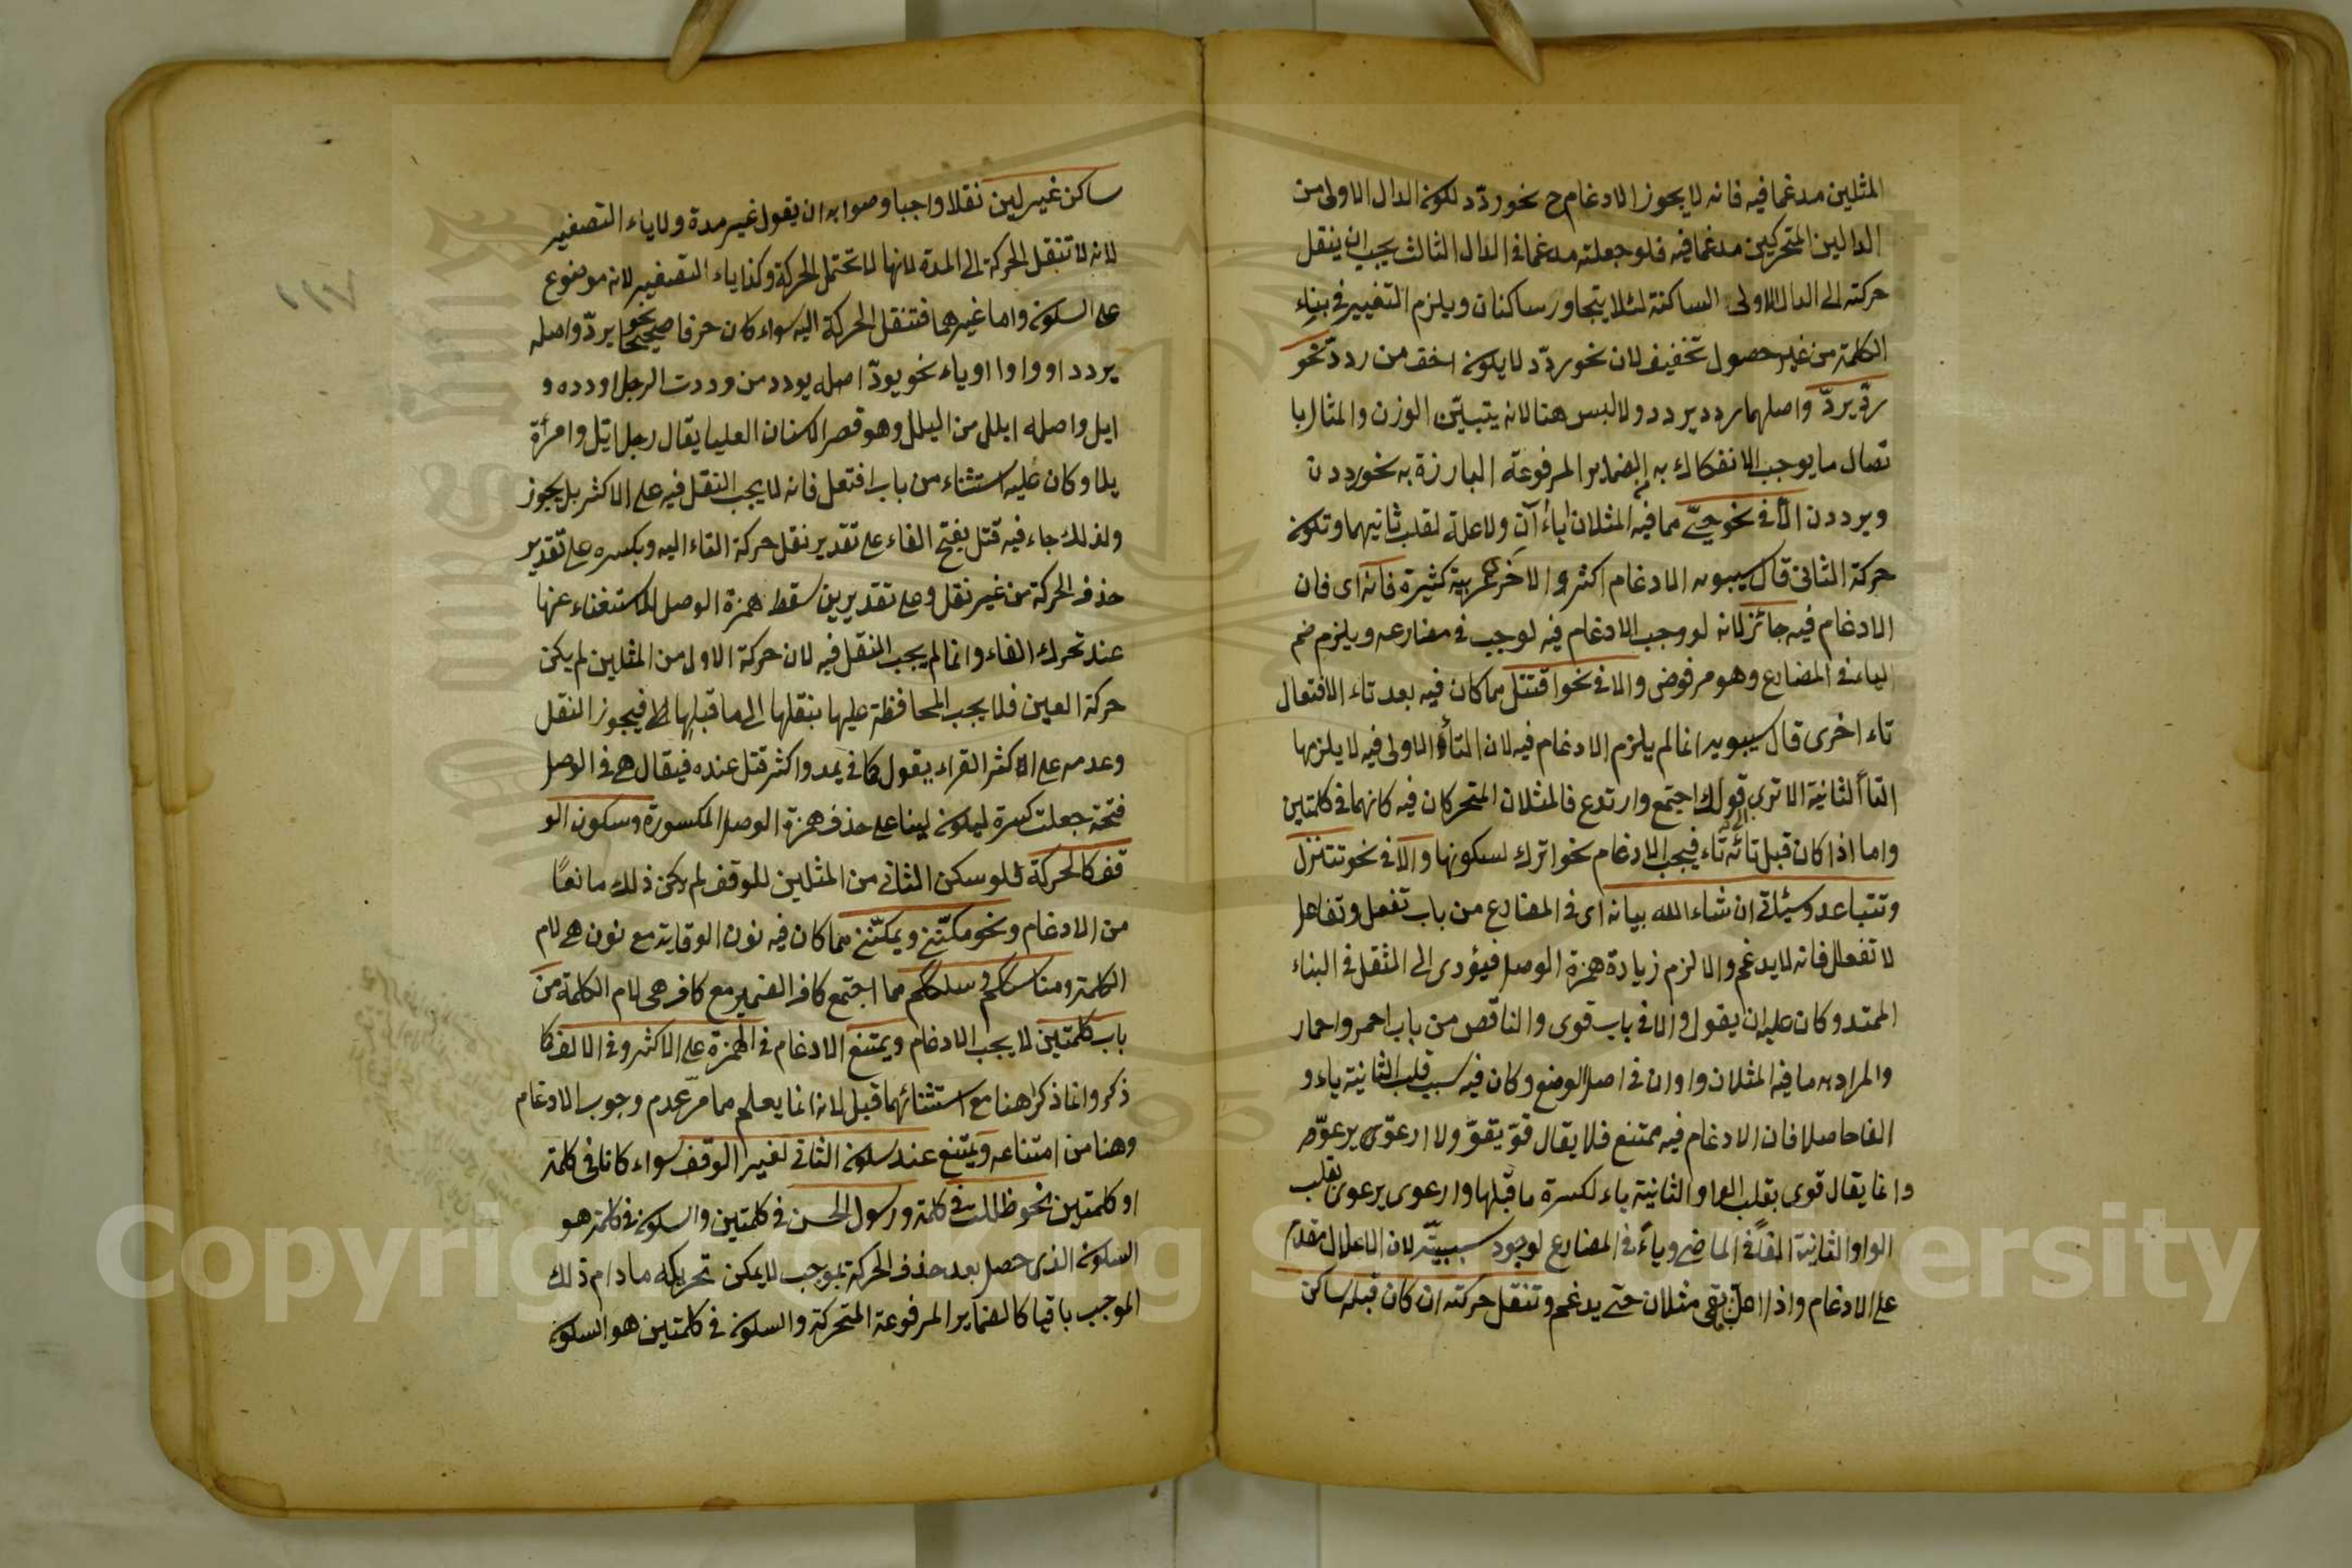 المثلين مدغما فيه فانه لا يجوز الادغام ح نحو ردّد لكونه الدال الاولى من
الدالين المتحركين مدغما فيه فلو جعلته مدغما فى الدال الثالث يجب ان ينقل
حركته الى الدال الاولى الساكنة لئلا يتجاور ساكنان ويلزم التغيير فى بناء
الكلمة من غير حصول تخفيف لان نحو ردّد لا يكون اخف من ردد نحو
ردّ يردّ واصلهما ردد يردد ولا لبس هنا لانه يتبيّن الوزن والمثال با
تصال ما يوجب الانفكاك به الضماير المرفوعة البارزة به نحو رددن
ويرددن الا فى نحو حيى مما فيه المثلان ياءآن ولا علة لقلب ثانيهما وتكون
حركة الثانى قال سيبويه الادغام اكثر والاخرى عربية كثيرة فانه اى فان
الادغام فيه جائز لانه لو وجب الادغام فيه لوجب فى مضارعه ويلزم ضم
الياء فى المضارع وهو مرفوض والا فى نحو اقتتل مما كان فيه بعد تاء الافتعال
تاء اخرى قال سيبويه انما لم يلزم الادغام فيه لان التاء الاولى فيه لا يلزمها
التاء الثانية الا ترى قولك اجتمع وارتدع فالمثلان المتحركان فيه كانهما فى كلمتين
واما اذا كان قبل تائه تاء فيجب الادغام نحو اترك لسكونها والا فى نحو تتنزل
وتتباعد وسيئاتى ان شاء الله بيانه اى فى المضارع من باب تفعل وتفاعل
لا تفعلل فانه لا يدغم والا لزم زيادة همزة الوصل فيؤدى الى الثقل فى البناء
الممتد وكان عليه ان يقول والا فى باب قوى والناقص من باب احمر واحمار
والمراد به ما فيه المثلان واوان فى اصل الوضع وكان فيه سبب قلب الثانية ياء و
الفا حاصلا فان الادغام فيه ممتنع فلا يقال قوّ يقوّ ولا ارعوّ يرعوّ
وانما يقال قوى بقلب الواو الثانية ياء لكسرة ما قبلها وارعوى يرعوى بقلب
الواو الثانية الفا فى الماضى وياء فى المضارع لوجود سببيته لان الاعلال مقدم
على الادغام واذا اعل لم يبقى مثلان حتى يدغم وتنقل حركته ان كان قبله ساكن
ساكن غير لين نقلا واجبا وصوابه ان يقول غير مدة ولا ياء التصغير
لانه لا تنقل الحركة الى المدة لانها لا تحتمل الحركة وكذا ياء التصغير لانه موضوع
على السكون واما غيرهما فتنقل الحركة اليه سواء كان حرفا صحيحا نحو يردّ واصله
يردد او واوا او ياء نحو يودّ اصله يودد من وددت الرجل اودده و
ايل واصله ايلل من اليلل وهو قصر الاسنان العليا يقال رجل ايل وامرأة
يلا وكان عليه استثناء من باب افتعل فانه لا يجب النقل فيه على الاكثر بل يجوز
ولذلك جاء فيه قتل بفتح الفاء على تقدير نقل حركة التاء اليه وبكسره على تقدير
حذف الحركة من غير نقل وعلى تقديرين سقط همزة الوصل للاستغناء عنها
عند تحرك الفاء وانما لم يجب النقل فيه لان حركة الاول من المثلين لم يكن
حركة العين فلا يجب المحافظة عليها بنقلها الى ما قبلها فيجوز النقل
وعدمه على الاكثر القراء يقول كما فى يمد واكثر قتل عنده فيقال هى فى الوصل
فتحة جعلت كسرة ليكون لينا على حذف همزة الوصل المكسورة وسكون الو
قف كالحركة فلو سكن الثانى من المثلين للوقف لم يكن ذلك مانعًا
من الادغام ونحو مكّننى ويمكّننى مما كان فيه نون الوقاية مع نون هى لام
الكلمة ومناسككم وسلككم مما اجتمع كاف الضمير مع كاف هى لام الكلمة من
باب كلمتين لا يجب الادغام ويمتنع الادغام فى الهمزة على الاكثر وفى الالف كا
ذكر وانما ذكرا هنا مع استثنائهما قبل لانه انما يعلم مما مرّ عدم وجوب الادغام
وهنا من امتناعه ويمتنع عند سكون الثانى لغير الوقف سواء كانا فى كلمة
او كلمتين نحو ظللت فى كلمة ورسول الحسن فى كلمتين والسكون فى كلمة هو
السكون الذى حصل بعد حذف الحركة بموجب لا يمكن تحريكه ما دام ذلك
الموجب باقيا كالضماير المرفوعة المتحركة والسكون فى كلمتين هو السكون
Copyright © King Saud University